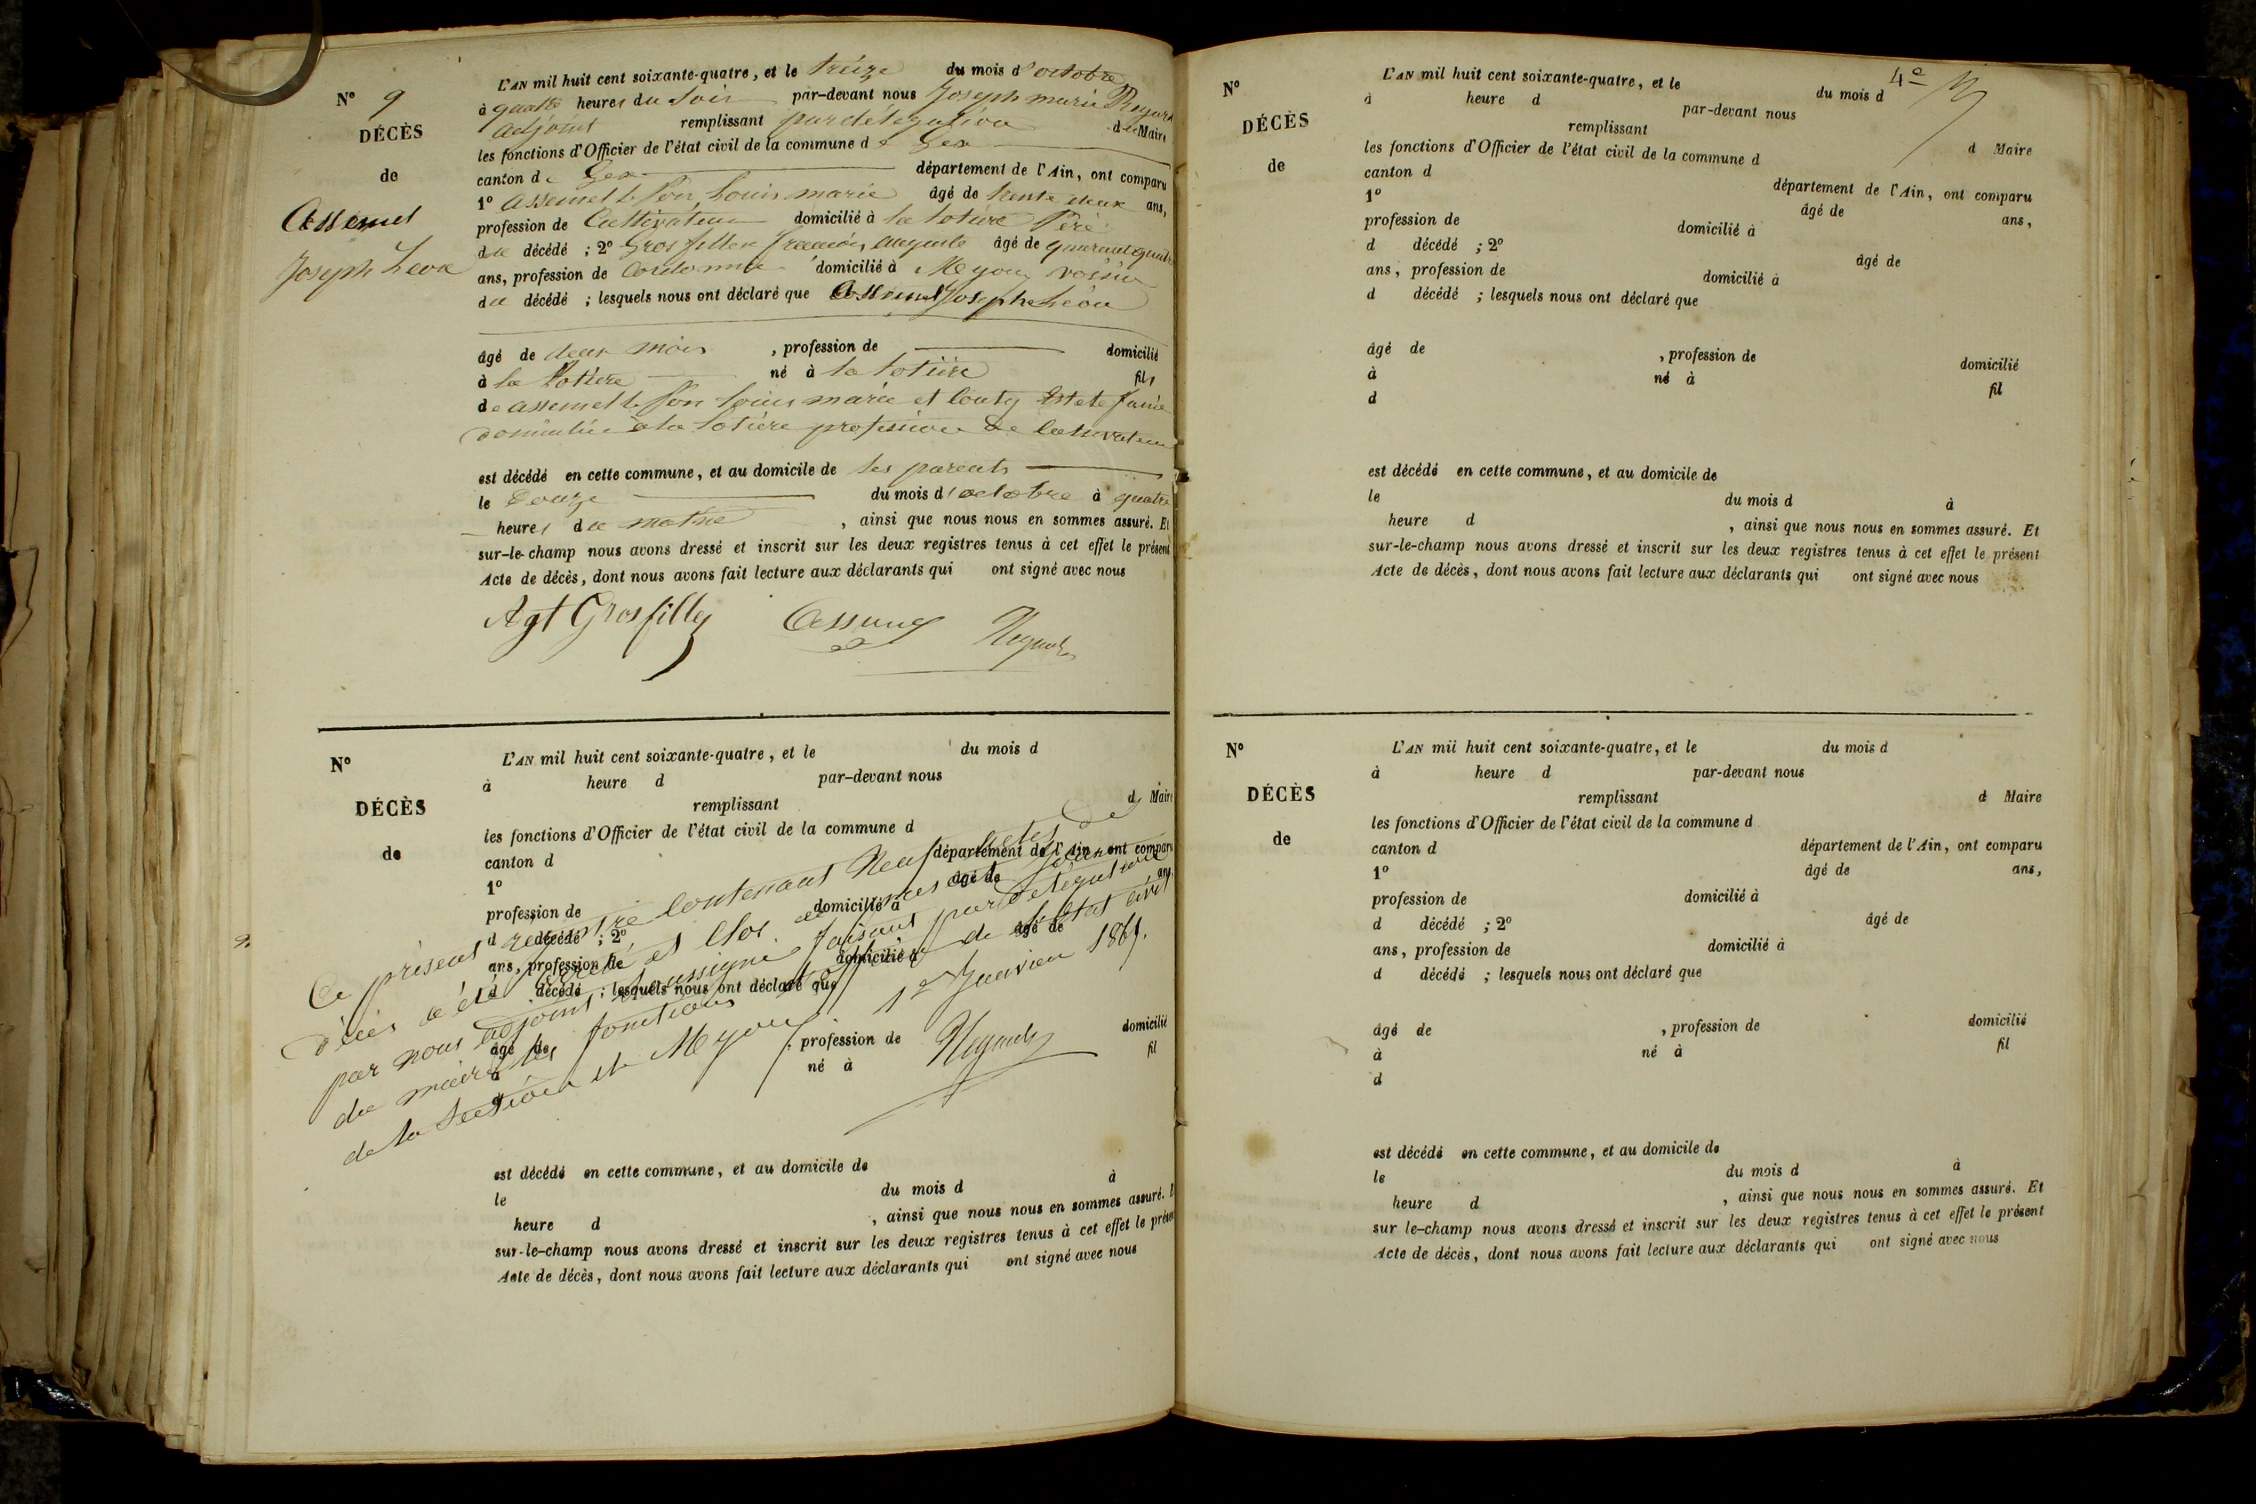 N° 9
DÉCÈS
de
Assemet
Joseph Leon
L'AN mil huit cent soixante-quatre, et le treize du mois d'octobre
à quatre heures du soir par-devant nous Joseph marie
adjoint remplissant par délégation du Maire
les fonctions d'Officier de l'état civil de la commune de Gex
canton de Gex département de l'Ain, ont comparu
1° assemet Louis marie âgé de trente deux ans,
profession de Cultivateur domicilié à la Père
du décédé ; 2° Grosfilley françois auguste âgé de quarante quatre
ans, profession de Cordonnier domicilié à voisin
du décédé ; lesquels nous ont déclaré que Assemet Joseph Léon
âgé de deux mois , profession de domicilié
à la né à la fils
de assemet Louis marie et
domiciliés à la profession de Cultivateur
est décédé en cette commune, et au domicile de ses parents
le douze du mois d'octobre à quatre
heures du matin , ainsi que nous nous en sommes assuré. Et
sur-le-champ nous avons dressé et inscrit sur les deux registres tenus à cet effet le présent
Acte de décès, dont nous avons fait lecture aux déclarants qui ont signé avec nous
Agt Grosfilley
N°
DÉCÈS
de
L'AN mil huit cent soixante-quatre, et le du mois d
à heure d par-devant nous
remplissant d Maire
les fonctions d'Officier de l'état civil de la commune d
canton d département de l'Ain, ont comparu
1° âgé de ans
profession de domicilié à
d décédé ; 2° âgé de
ans, profession de domicilié à
d décédé ; lesquels nous ont déclaré que
âgé de , profession de domicilié
à né à fil
d
Ce présent registre contenant Neuf actes de
décès a été et clos
par nous adjoint soussigné faisant par délégation
du maire les fonctions d'officier de l'état civil
de la section de 1er Janvier 186
est décédé en cette commune, et au domicile de
le du mois d à
heure d , ainsi que nous nous en sommes assuré.
sur-le-champ nous avons dressé et inscrit sur les deux registres tenus à cet effet le présent
Acte de décès, dont nous avons fait lecture aux déclarants qui ont signé avec nous
4e
N°
DÉCÈS
de
L'AN mil huit cent soixante-quatre, et le du mois d
à heure d par-devant nous
remplissant d Maire
les fonctions d'Officier de l'état civil de la commune d
canton d département de l'Ain, ont comparu
1° âgé de ans,
profession de domicilié à
d décédé ; 2° âgé de
ans, profession de domicilié à
d décédé ; lesquels nous ont déclaré que
âgé de , profession de domicilié
à né à fil
d
est décédé en cette commune, et au domicile de
le du mois d à
heure d , ainsi que nous nous en sommes assuré. Et
sur-le-champ nous avons dressé et inscrit sur les deux registres tenus à cet effet le présent
Acte de décès, dont nous avons fait lecture aux déclarants qui ont signé avec nous
N°
DÉCÈS
de
L'AN mil huit cent soixante-quatre, et le du mois d
à heure d par-devant nous
remplissant d Maire
les fonctions d'Officier de l'état civil de la commune d
canton d département de l'Ain, ont comparu
1° âgé de ans,
profession de domicilié à
d décédé ; 2° âgé de
ans, profession de domicilié à
d décédé ; lesquels nous ont déclaré que
âgé de , profession de domicilié
à né à fil
d
est décédé en cette commune, et au domicile de
le du mois d à
heure d , ainsi que nous nous en sommes assuré. Et
sur le-champ nous avons dressé et inscrit sur les deux registres tenus à cet effet le présent
Acte de décès, dont nous avons fait lecture aux déclarants qui ont signé avec nous